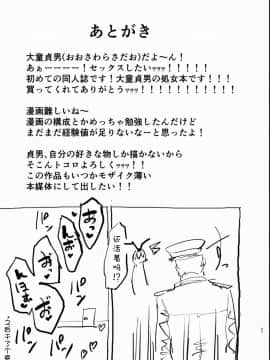 あとがき
大童貞男(おおさわらさだお)だよ~ん!
あぁーーーー!セックスしたいッッッ!!!!!!
初めての同人誌です!大童貞男の処女本です!!!!
買ってくれてありがとうッッッ!!!!!!!!!
漫画難しいね~
漫画の構成とかめっちゃ勉強したんだけど
まだまだ経験値が足りないなーと思ったよ!
貞男、自分の好きな物しか描かないから
そこんトコロよろしくッッッ!!!
この作品もいつかモザイク薄い
本媒体にして出したい!!
还活着吗!?
あっ
おんっ
パン
パン
パン
パン